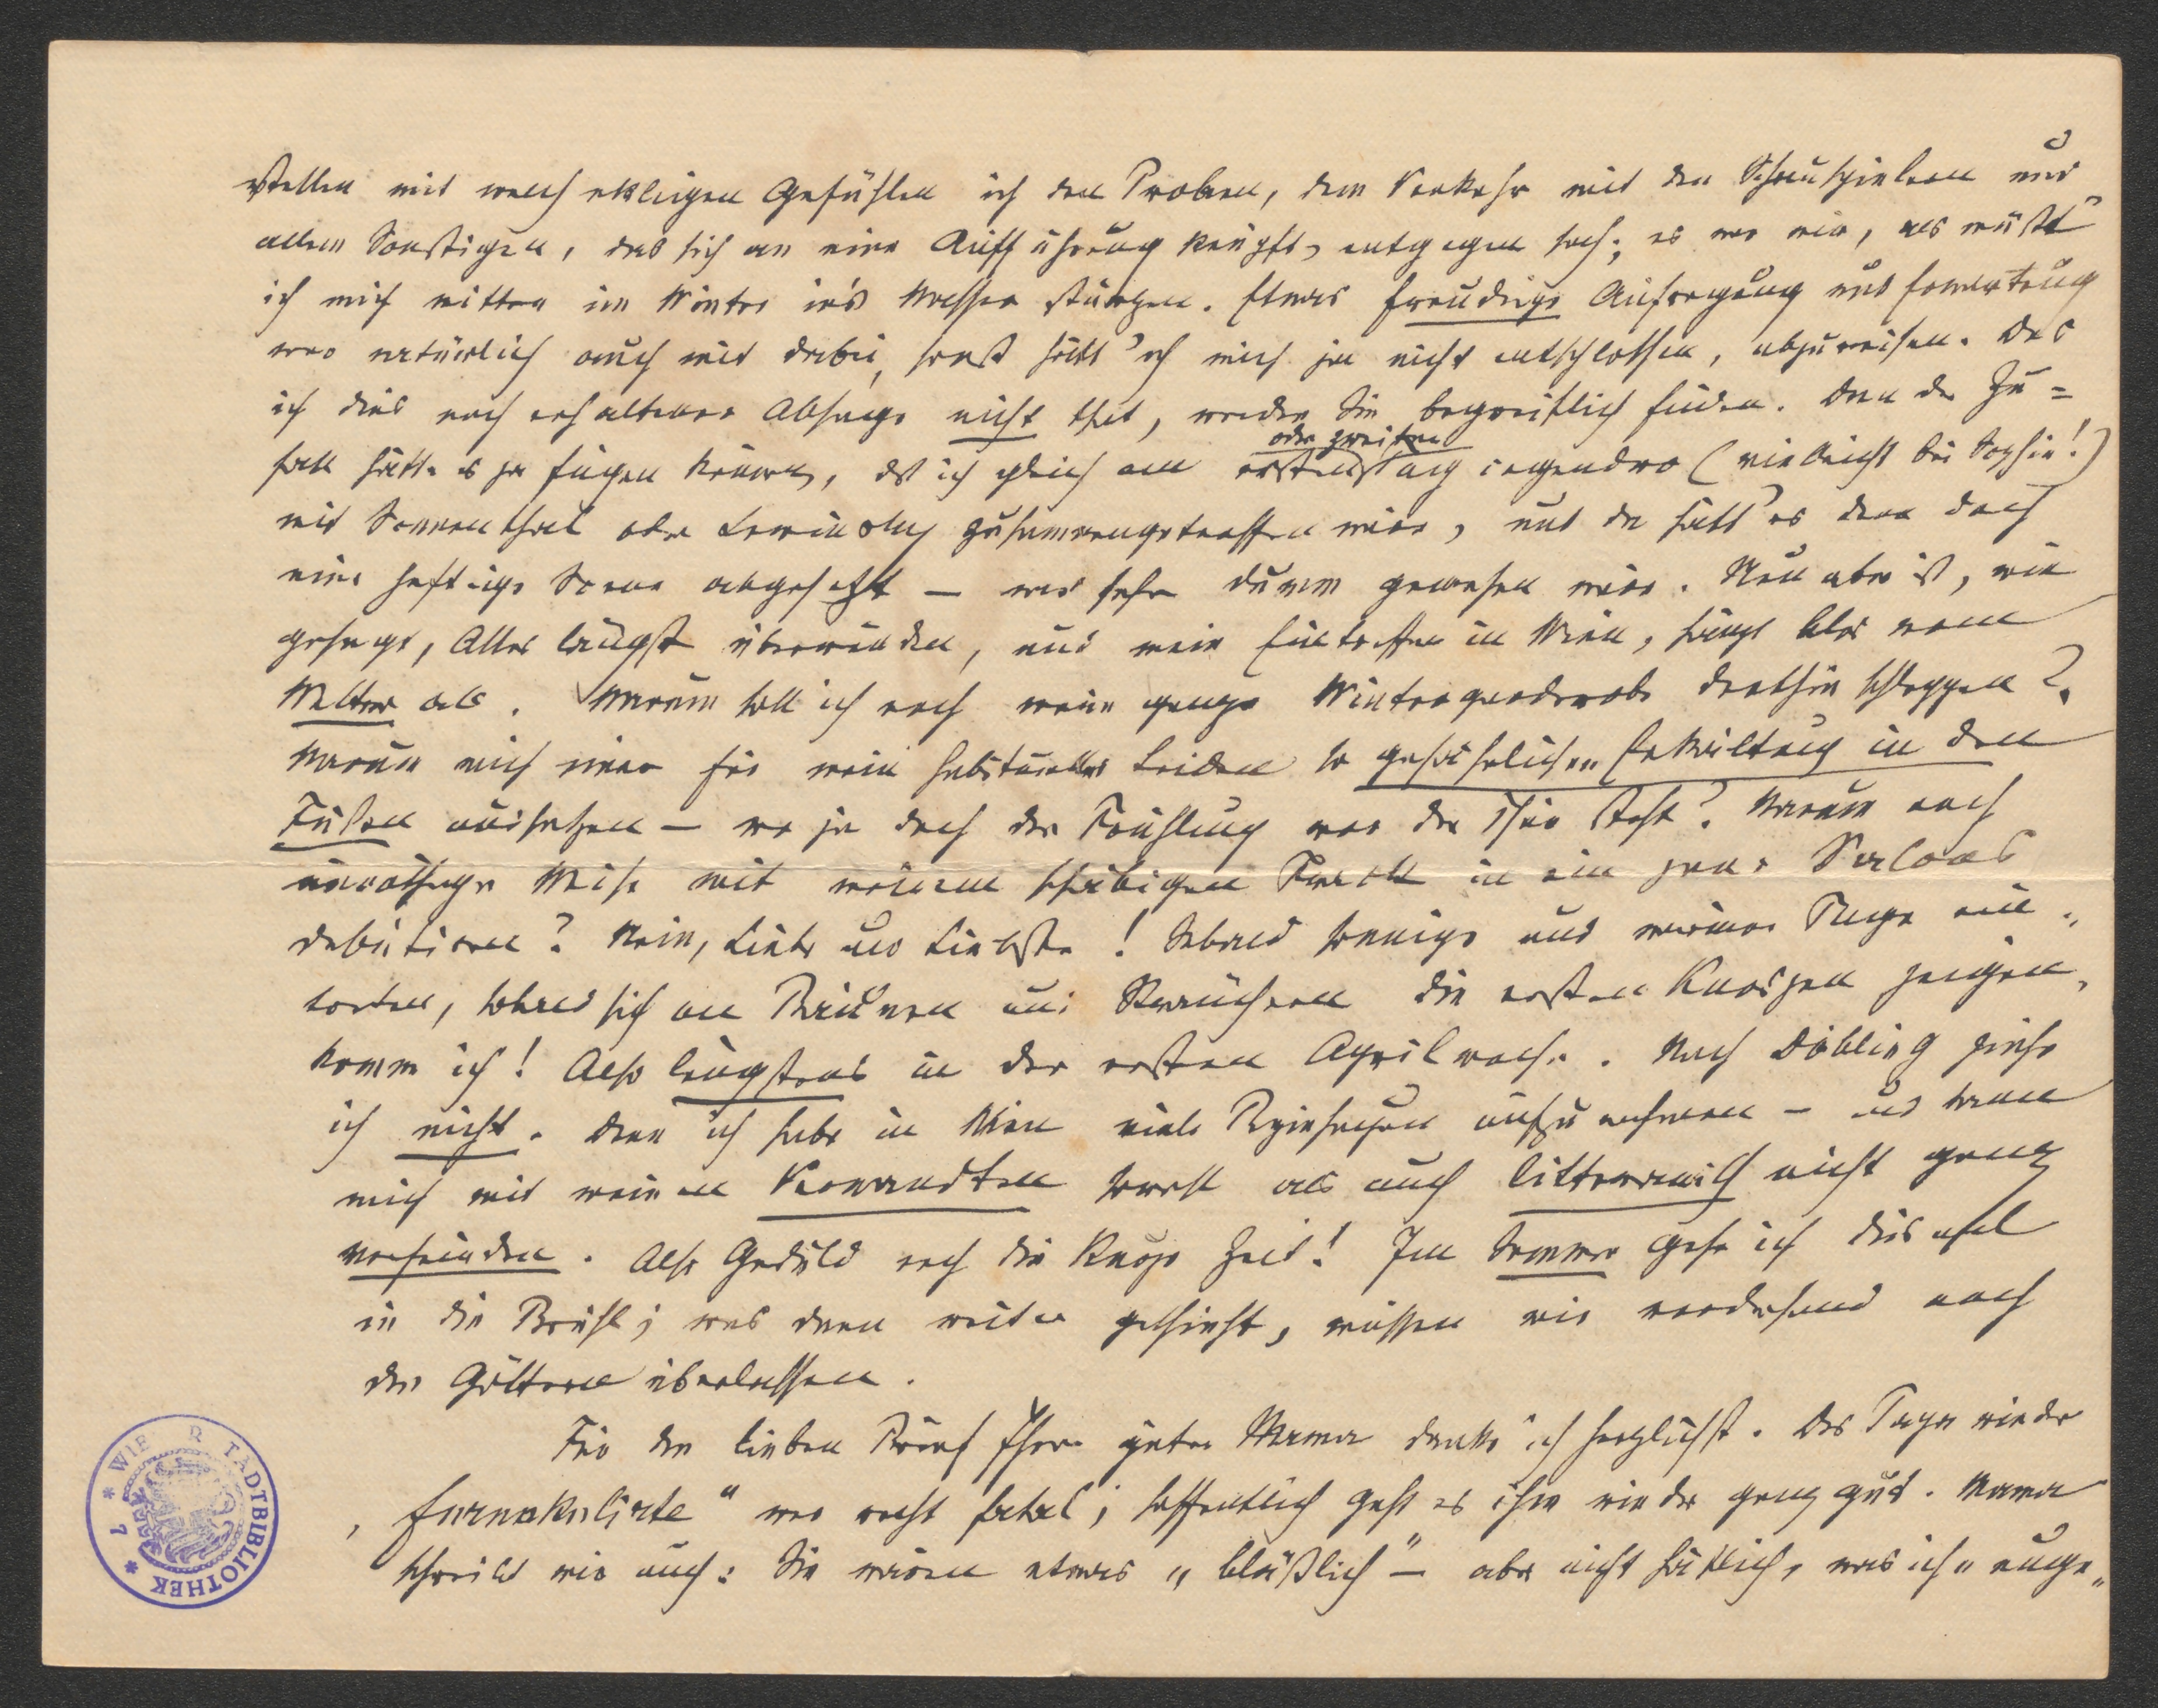 stellen mit welch ekligen Gefühlen ich den Proben, dem Verkehr mit den Schauspielern und
allem Sonstigen, das sich an eine Aufführung knüpft, entgegen sah; es war mir, als müßt'
ich mich mitten im Winter in's Wasser stürzen. Etwas freudige Aufregung und Erwartung
war natürlich auch mit dabei, sonst hätt' ich mich ja nicht entschlossen, abzureisen. Das
ich dies nach erhaltener Absage nicht that, werden Sie begreiflich finden. Denn der Zu=
fall hätte es ja fügen können, daß ich gleich am ersten oder zweiten Tag irgendwo (vielleicht bei Sophie!)
mit Sonnenthal oder Lewinsky zusammengetroffen wäre, und da hätt' es denn doch
eine heftige Scene abgesetzt – was sehr dumm gewesen wäre. Nun aber ist, wie
gesagt, Alles längst überwunden, und mein Eintreffen in Wien, hängt blos vom
Wetter ab. Warum soll ich noch meine ganze Wintergarderobe dorthin schleppen?
Warum mich einer für mein habituelles Leiden so gefährlichen Erkältung in den
Füßen aussetzen – wo ja doch der Frühling vor der Thür steht? Warum auch
unnöthiger Weise mit meinem schäbigen Frack in ein paar Salons
debütiren? Nein, Liebe und Liebste! Sobald sonnige und warme Tage ein-
treten, sobald sich an Bäumen und Sträuchern die ersten Knospen zeigen,
komm ich! Also längstens in der ersten Aprilwoche. Nach Döbling ziehe
ich nicht. Denn ich habe in Wien viele Beziehungen aufzunehmen – und kann
mich mit meinen Verwandten sowohl als auch litterarisch nicht ganz
verfeinden. Also Geduld noch die kurze Zeit! Im Sommer gehe ich diesmal
in die Brühl; was dann weiter geschieht, müssen wir vorderhand noch
den Göttern überlassen.
Für den lieben Brief Ihrer guten Mama danke ich herzlichst. Das Papa wieder
„furunkulirte" war recht fatal; hoffentlich geht es ihm wieder ganz gut. Mama
schreibt mir auch: Sie wären etwas „bläßlich" – aber nicht häßlich, was ich „unge„
WIE R TADTBIBLIOTHEK * 7 *